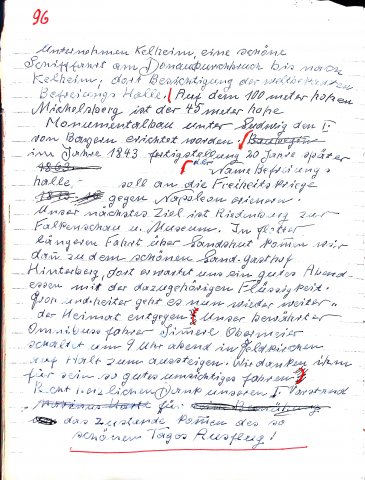 96
Unternehmen Kelheim, eine schöne
Schifffahrt am Donaudurchbruch bis nach
Kelheim, dort Besichtigung der weltbekannten
Befreiungs Halle. Auf dem 100 meter hohen
Michelsberg ist der 45 meter hohe
Monumentalbau unter Ludwig den I.
von Bayern errichtet worden.
im Jahre 1843 fertigstellung 20 Jahre später
1863. der Name Befreiungs
halle, soll an die Freiheitskriege
gegen Napoleon erinern.
Unser nächstes Ziel ist Riedenburg zur
Falkenschau u. Museum. In flotter
längeren Fahrt über Landshut komen wir
dan zu dem schönen Land.gasthof
Hinterberg, dort erwartet uns ein gutes Abend
essen mit der dazugehörigen Flüssigkeit.
Froh und heiter geht es nun wieder weiter
der Heimat entgegen. Unser bewährter
Omnibussfahrer Simerl Obermeier
schaltet um 9 Uhr abend in Feldkirchen
auf Halt zum austeigen. Wir danken ihm
für sein so gutes umsichtiges fahren.
Recht herzlichen Dank unseren I Vorstand
für
das zustande komen des so
schönen Tages Ausflug!